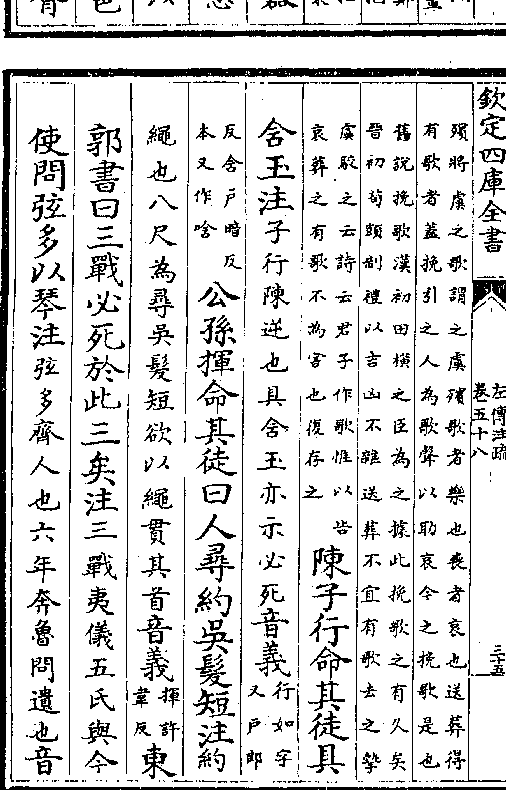 欽定四庫全書
左傳注疏
卷五十八
三十五
殯將虞之歌謂之虞殯歌者樂也喪者哀也送葬得
有歌者蓋挽引之人為歌聲以助哀今之挽歌是也
舊說挽歌漢初田橫之臣為之據此挽歌之有久矣
晉初荀顗制禮以吉凶不雜送葬不宜有歌去之摯
虞駮之云詩云君子作歌惟以告
哀葬之有歌不為害也復存之
陳子行命其徒具
含玉注子行陳逆也具含玉亦示必死音義行如字
又戶郎
反含戶暗反
本又作唅
公孫揮命其徒曰人尋約吳髪短注約
繩也八尺為尋吳髪短欲以繩貫其首音義揮許
韋反
東
郭書曰三戰必死於此三矣注三戰夷儀五氏與今
使問弦多以琴注弦多齊人也六年奔魯問遺也音